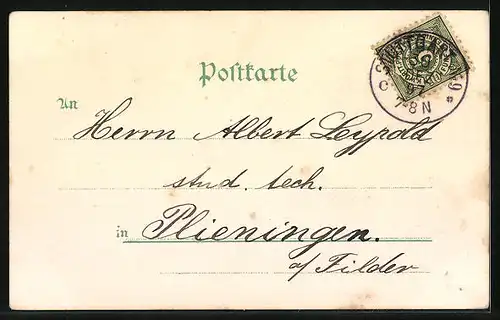 STUTTGART
97
7-8 N
Postkarte
An
Herrn Albert Leyrold
stud. tech.
in Plieningen.
a/ Filder